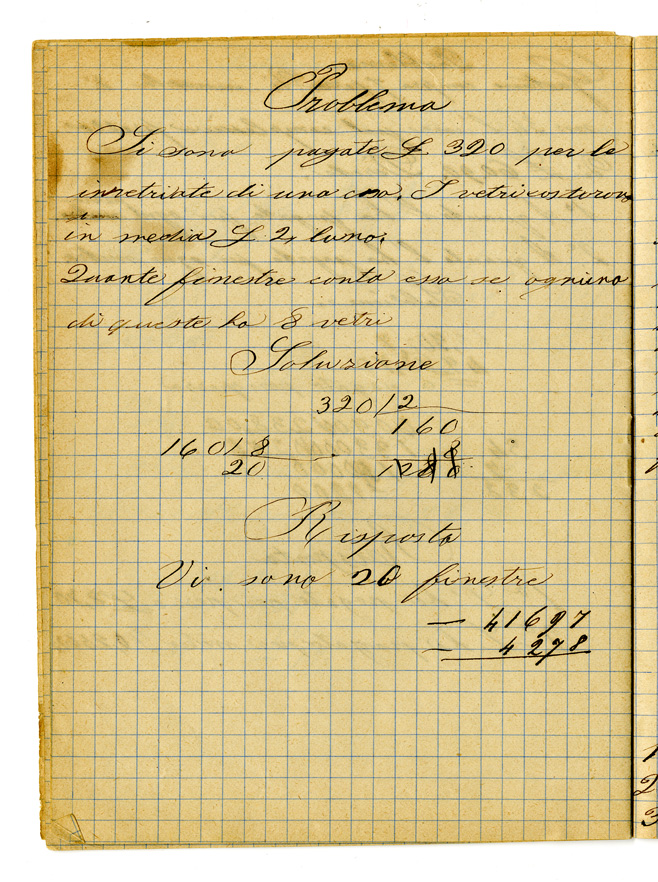 Problema
Si sono pagate £ 320 per le
invetriate di una casa. I vetri costarono
in media £ 2, l'uno.
Quante finestre conta essa se ognuna
di queste ha 8 vetri
Soluzione
320 / 2
160
160 / 8
8
20
Risposta
Vi sono 20 finestre
— 41697
— 4278
1
2
3